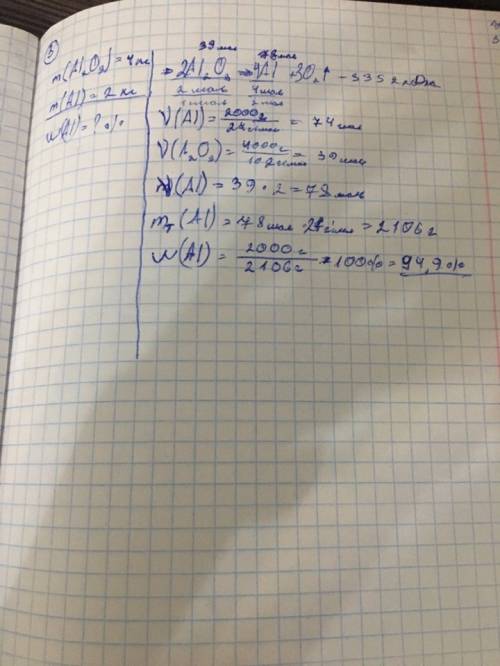 3
m(Al₂O₃)=4кг
m(Al)=2кг
W(Al)=?%
39моль 78моль
2Al₂O₃ = 4Al + 3O₂↑ - 3352кДж
2моль 4моль
1моль 2моль
ν(Al)=2000г/27г/моль = 74моль
ν(Al₂O₃)=4000г/102г/моль = 39моль
ν(Al)=39·2=78моль
mт(Al)=78моль·27г/моль=2106г
W(Al)=2000г/2106г·100%=94,9%